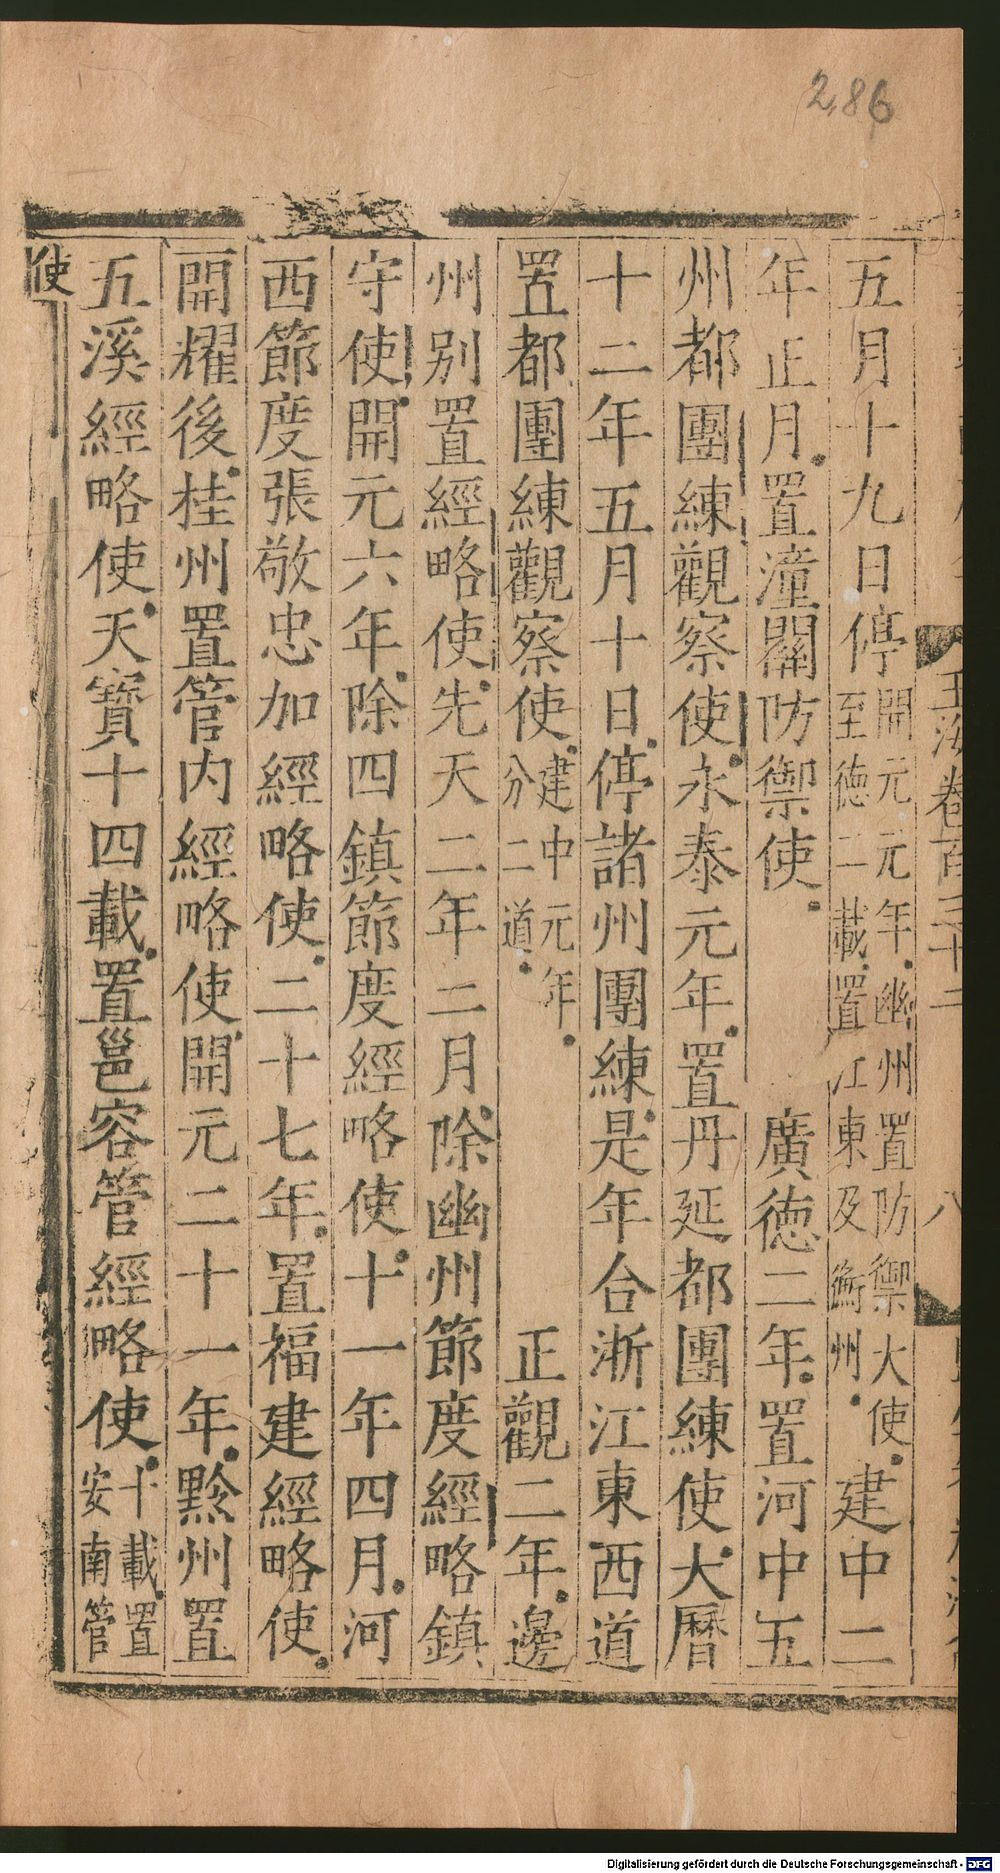 286
玉海卷百三十二
八
五月十九日停開元元年幽州置防禦大使至德二載置江東及衡州建中二
年正月置潼關防禦使 廣德二年置河中五
州都團練觀察使永泰元年置丹延都團練使大曆
十二年五月十日停諸州團練是年合浙江東西道
置都團練觀察使建中元年分二道 正觀二年邊
州別置經略使先天二年二月除幽州節度經略鎮
守使開元六年除四鎮節度經略使十一年四月河
西節度張敬忠加經略使二十七年置福建經略使
開耀後桂州置管內經略使開元二十一年黔州置
五溪經略使天寶十四載置邕容管經略使十載置安南管
使
Digitalisierung gefördert durch die Deutsche Forschungsgemeinschaft - DFG